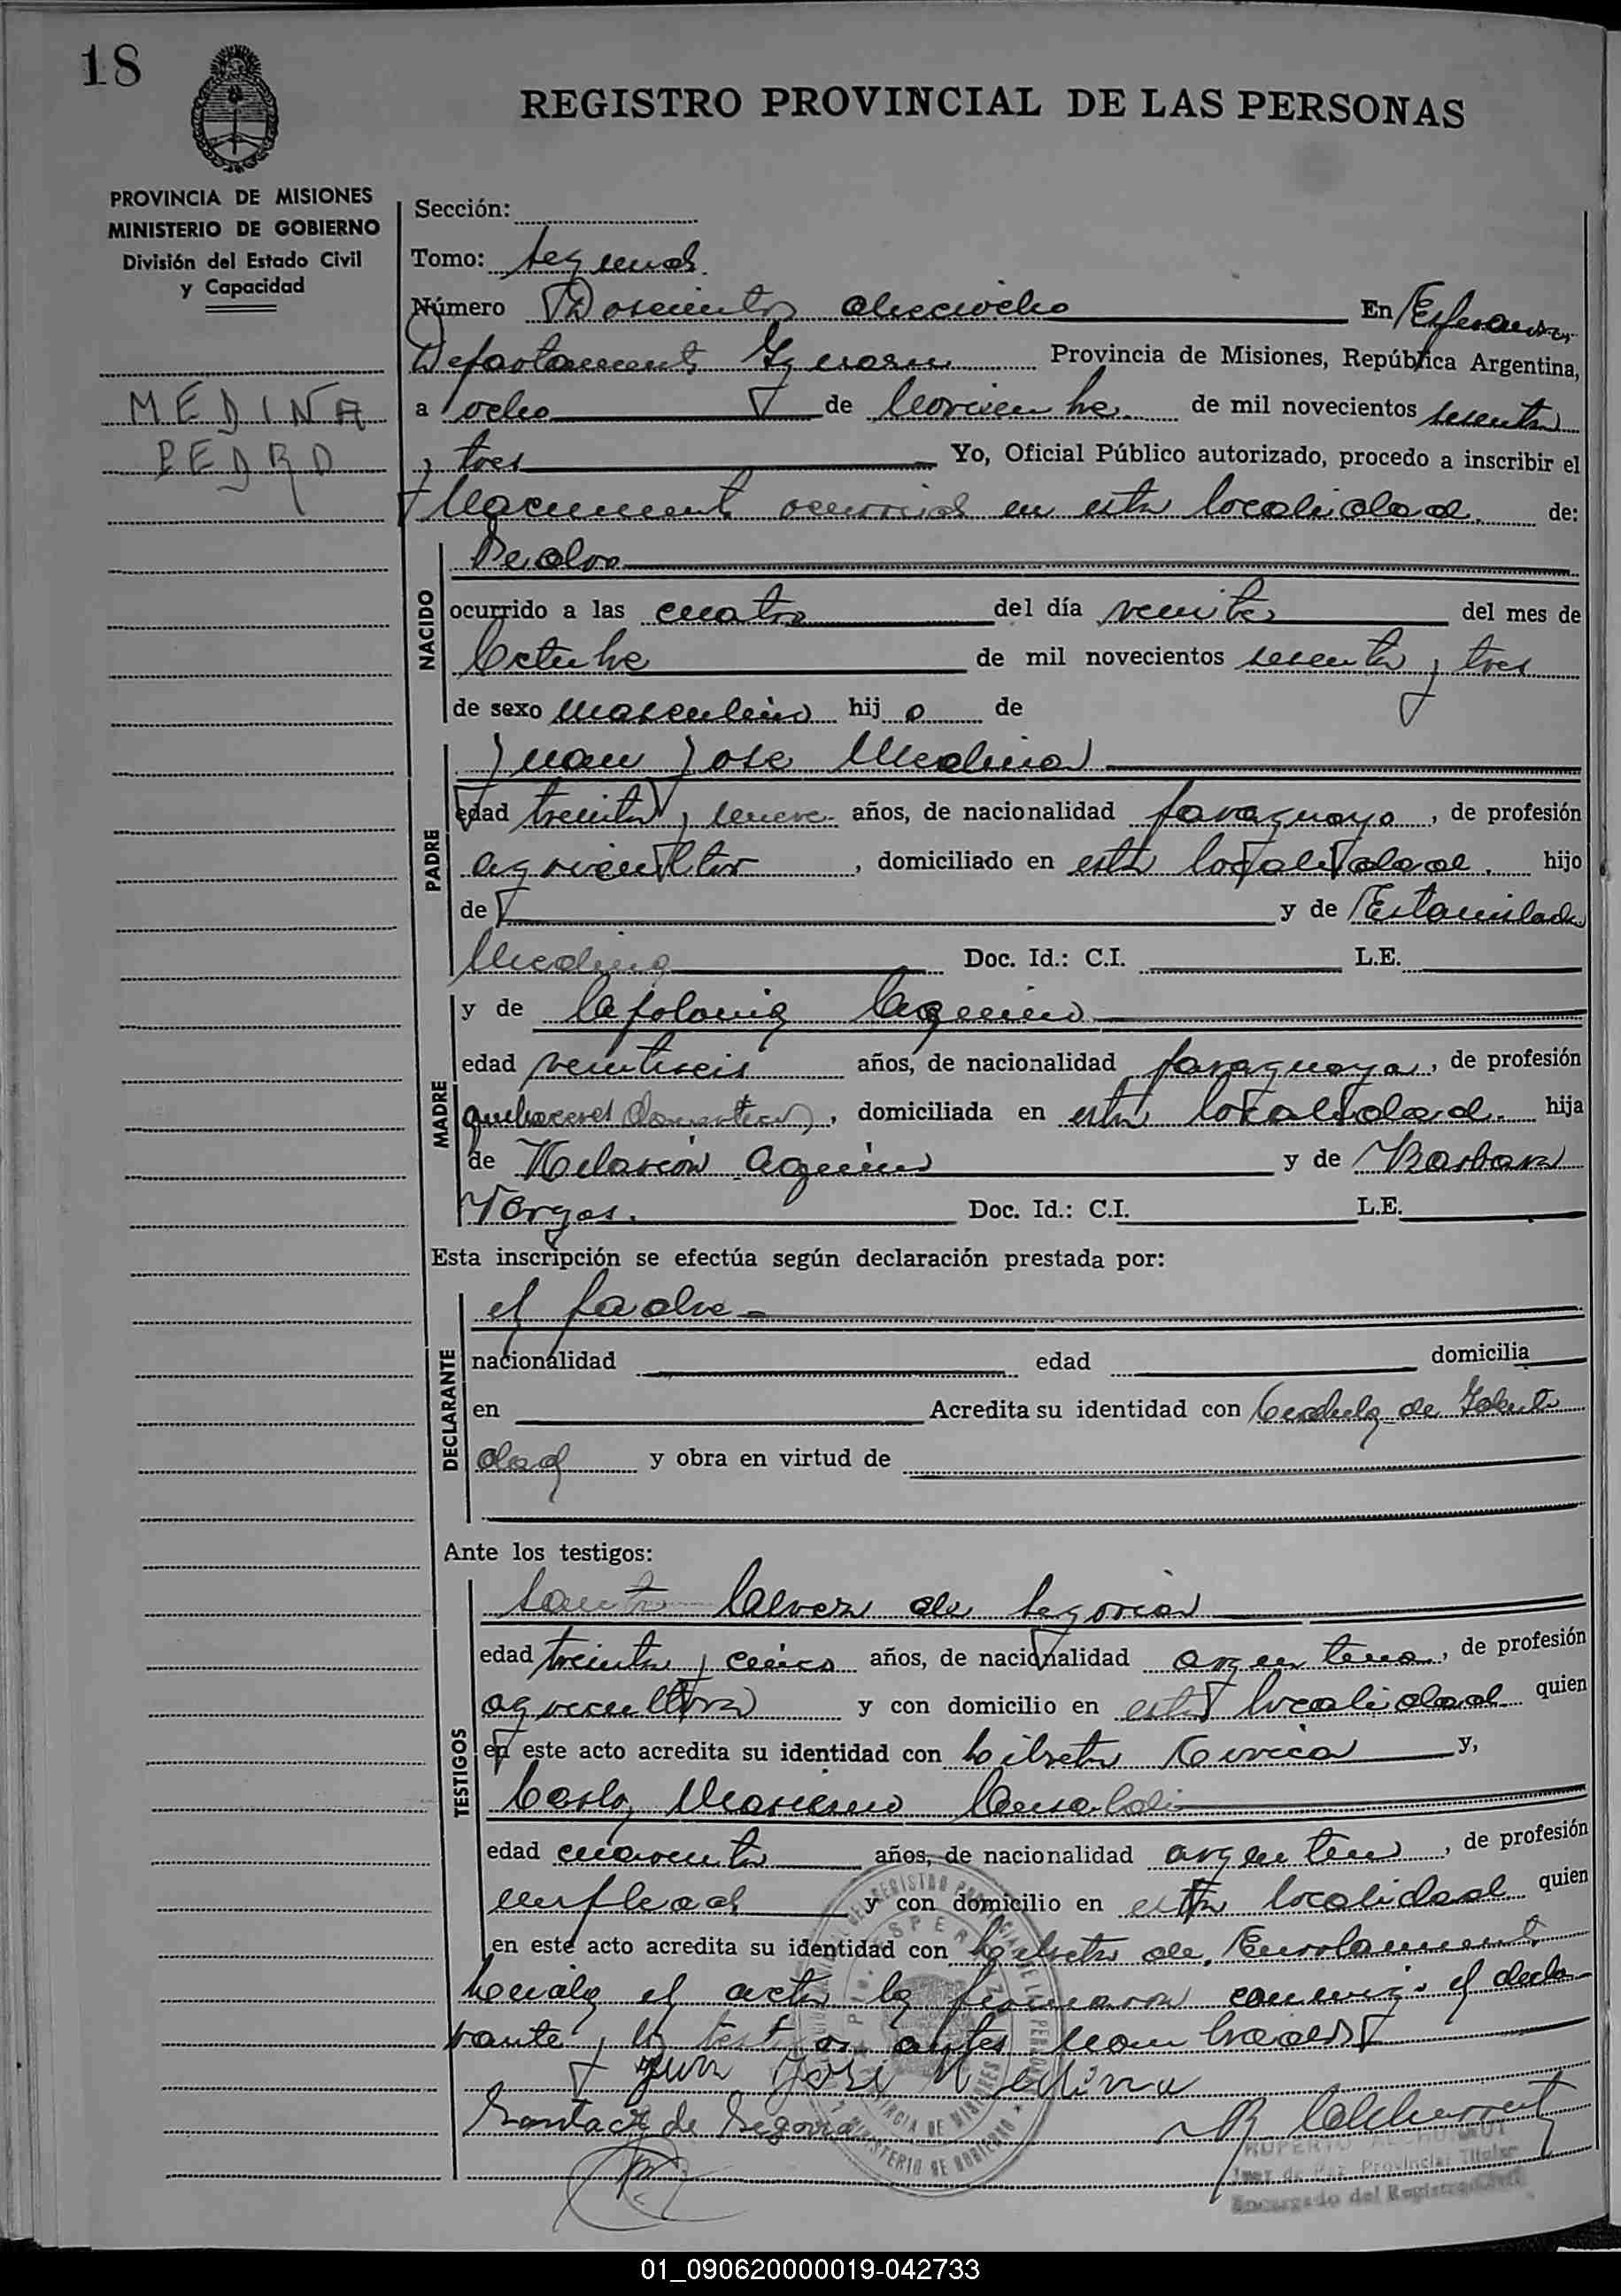 18
REGISTRO PROVINCIAL DE LAS PERSONAS
PROVINCIA DE MISIONES
MINISTERIO DE GOBIERNO
División del Estado Civil
y Capacidad
MEDINA
PEDRO
Sección:
Tomo: segundo
Número Doscientos dieciocho En Esperanza,
Departamento Iguazú Provincia de Misiones, República Argentina,
a ocho de Noviembre de mil novecientos sesenta
y tres Yo, Oficial Público autorizado, procedo a inscribir el
Nacimiento ocurrido en esta localidad de:
NACIDO
Pedro
ocurrido a las cuatro del día veinte del mes de
Octubre de mil novecientos sesenta y tres
de sexo masculino hijo de
PADRE
Juan Jose Medina
edad treinta y nueve años, de nacionalidad paraguayo, de profesión
agricultor, domiciliado en esta localidad. hijo
de y de Estanislada
Medina Doc. Id.: C.I. L.E.
MADRE
y de Apolonia Aquino
edad veintiseis años, de nacionalidad paraguaya, de profesión
quehaceres domesticos, domiciliada en esta localidad. hija
de Hilarión Aquino y de Barbara
Vargas. Doc. Id.: C.I. L.E.
Esta inscripción se efectúa según declaración prestada por:
DECLARANTE
el padre
nacionalidad edad domicilia
en Acredita su identidad con Cedula de Identi
dad y obra en virtud de
Ante los testigos:
TESTIGOS
de Segovia
edad treinta y cinco años, de nacionalidad argentina, de profesión
agricultora y con domicilio en esta localidad quien
en este acto acredita su identidad con Libreta Civica y,
Carlos Mariano
edad cuarenta años, de nacionalidad argentino, de profesión
empleado y con domicilio en esta localidad quien
en este acto acredita su identidad con Libreta de Enrolamiento
Leida el acta la firmaron conmigo el decla
rante y los testigos antes nombrados
Juan José Medina
de Segovia
RUPERTO
Juez de Paz Provincial Titular
Encargado del Registro Civil
01_090620000019-042733